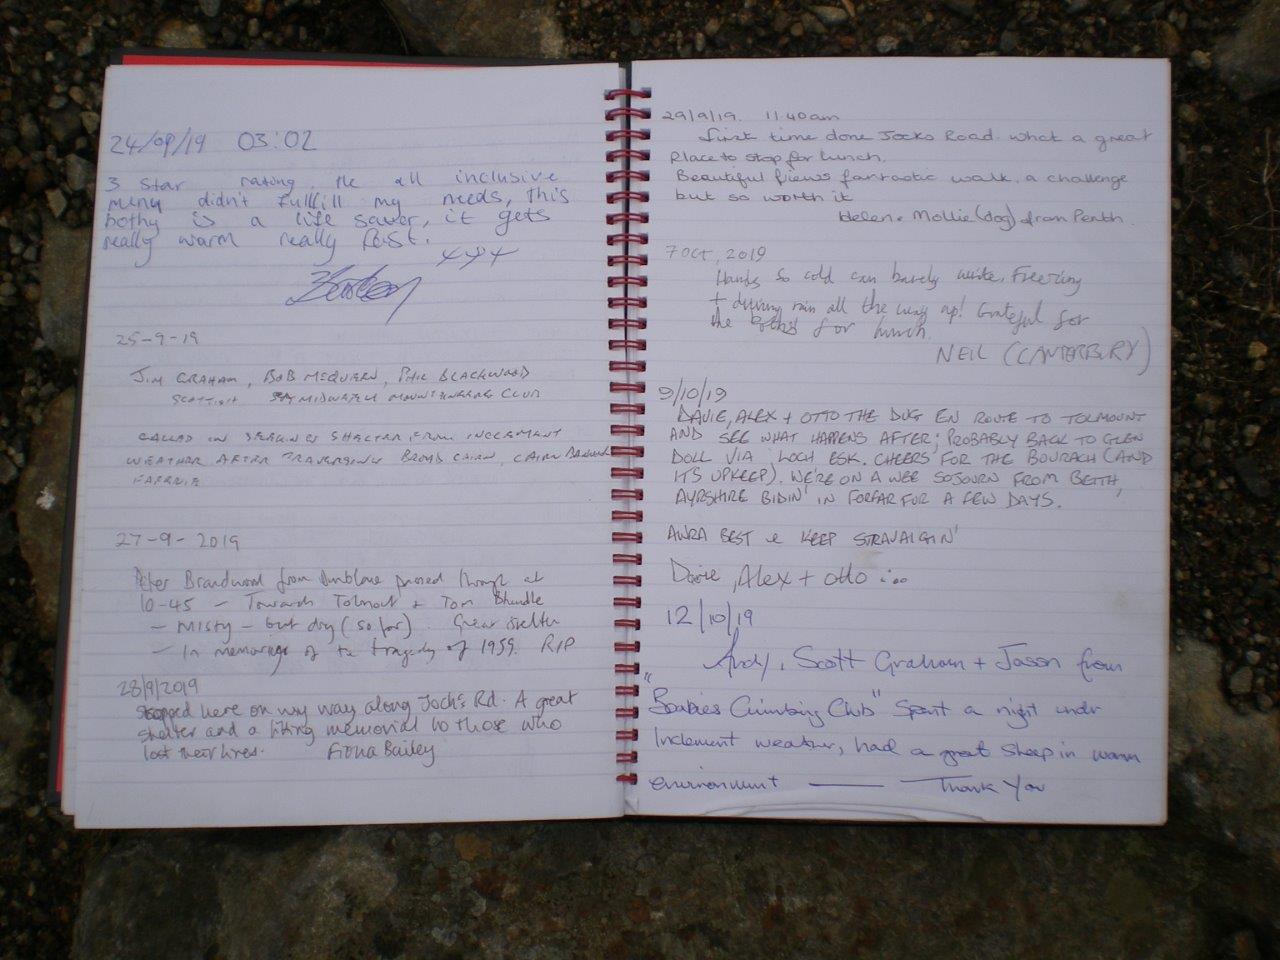 24/09/19 03:02
3 star rating, the all inclusive
menu didn't fullfill my needs, this
bothy is a life saver, it gets
really warm really fast.
25-9-19
JIM GRAHAM, BOB McQUIERN, PHIL BLACKWOOD
SCOTTISH MIDWATCH MOUNTAINEERING CLUB
CALLED IN SEEKING SHELTER FROM INCLEMENT
WEATHER AFTER TRAVERSING BROAD CAIRN, CAIRN
27-9-2019
Peter Brandwood from Dunblane passed through at
10-45 – Towards Tolmount + Tom
– Misty – but dry (so far). Great shelter
– In memoriage of the tragedy of 1959. RIP
28/9/2019
Stopped here on my way along Jock's Rd. A great
shelter and a fitting memorial to those who
lost their lives. Fiona Bailey
29/9/19. 11.40am
first time done Jocks Road. what a great
Place to stop for lunch.
Beautiful fiews fantastic walk. a challenge
but so worth it
Helen + Mollie (dog) from Perth.
7 OCT, 2019
Hands so cold can barely write. Freezing
+ driving rain all the way up! Grateful for
the for lunch.
NEIL (CANTERBURY)
9/10/19
DAVIE, ALEX + OTTO THE DUG EN ROUTE TO TOLMOUNT
AND SEE WHAT HAPPENS AFTER; PROBABLY BACK TO GLEN
DOLL VIA LOCH ESK. CHEERS FOR THE BOURACH (AND
ITS UPKEEP). WE'RE ON A WEE SOJOURN FROM BEITH,
AYRSHIRE BIDIN' IN FORFAR FOR A FEW DAYS.
AWRA BEST & KEEP STRAVAIGIN'
Davie, Alex + Otto :..
12/10/19
Andy, Scott Graham + Jason from
"Babies Climbing Club" Spent a night under
Inclement weather, had a great sleep in warm
environment —— Thank You